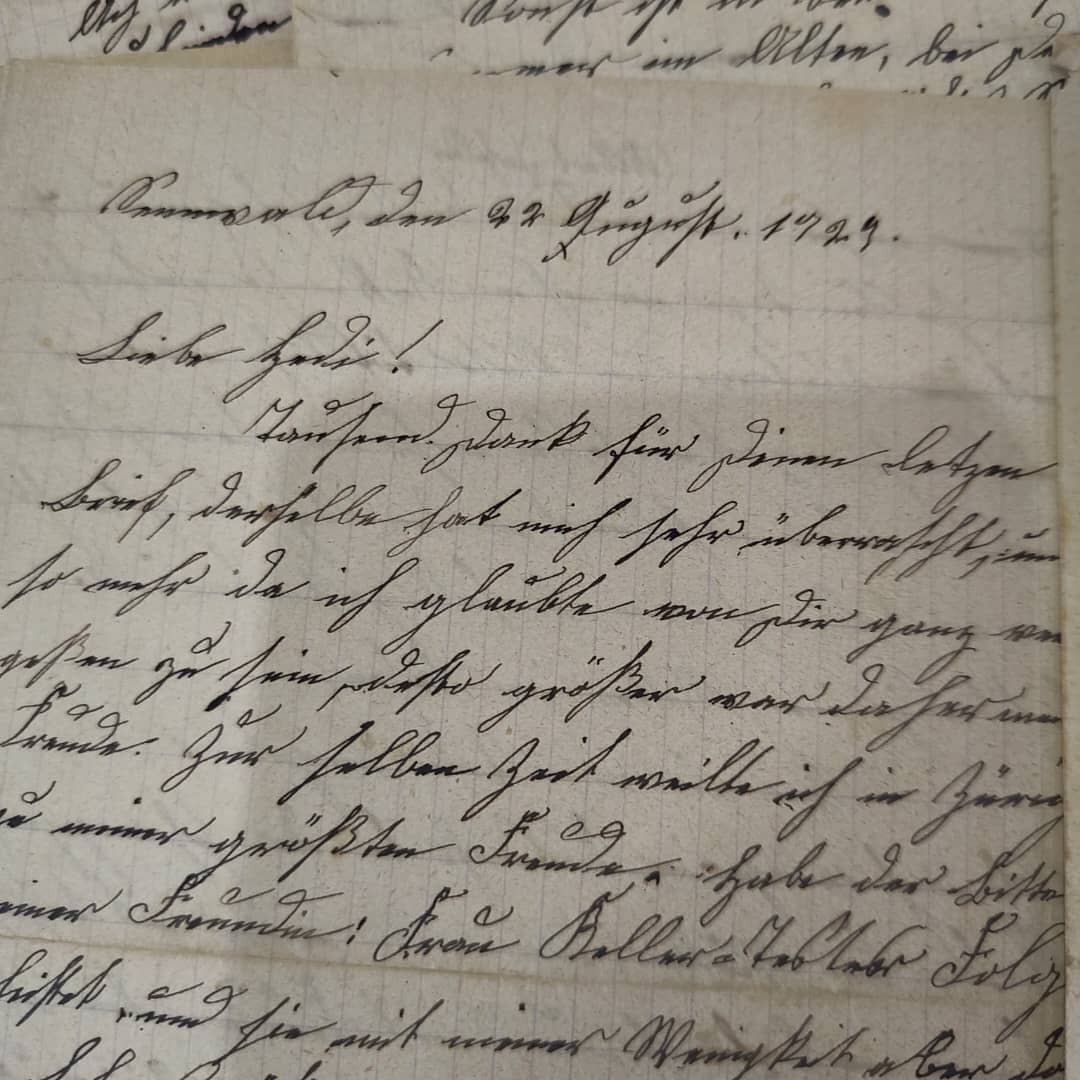 Sonst ist
immer im Alten, bei
Sennwald, den 22 August. 1929.
Liebe Hedi!
Tausend Dank für Deinen letzen
Brief, derselbe hat mich sehr überrascht, um
so mehr da ich glaubte von Dir ganz ver
geßen zu sein, desto größer war daher mei
Freude. Zur selben Zeit weilte ich in Züric
zu meiner größten Freude. Habe der Bitte
einer Freundin: Frau Keller-Tester Folg
leistet und sie mit meiner Wenigkeit aber